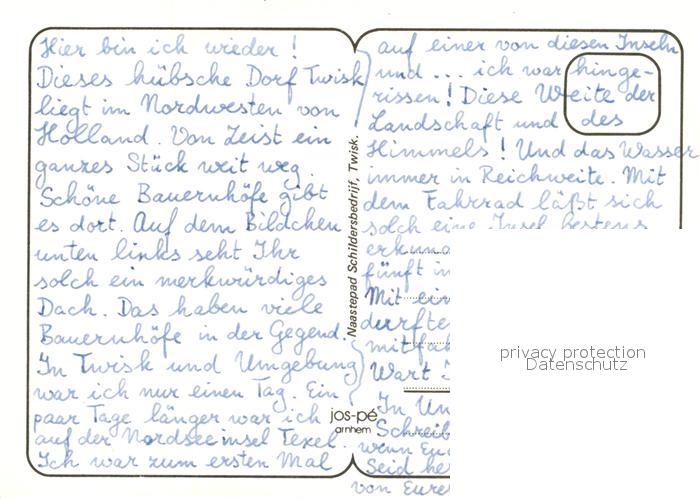 Hier bin ich wieder!
Dieses hübsche Dorf Twisk
liegt im Nordwesten von
Holland. Von Zeist ein
ganzes Stück weit weg.
Schöne Bauernhöfe gibt
es dort. Auf dem Bildchen
unten links seht Ihr
solch ein merkwürdiges
Dach. Das haben viele
Bauernhöfe in der Gegend.
In Twisk und Umgebung
war ich nur einen Tag. Ein
paar Tage länger war ich
auf der Nordseeinsel Texel.
Ich war zum ersten Mal
Naastepad Schildersbedrijf, Twisk.
jos-pé
arnhem
auf einer von diesen Inseln
und ... ich war hinge-
rissen! Diese Weite der
Landschaft und des
Himmels! Und das Wasser
immer in Reichweite. Mit
dem Fahrrad läßt sich
solch eine Insel bestens
fünft
Mit
durfte
Wart
In
wenn
Seid
von
privacy protection
Datenschutz